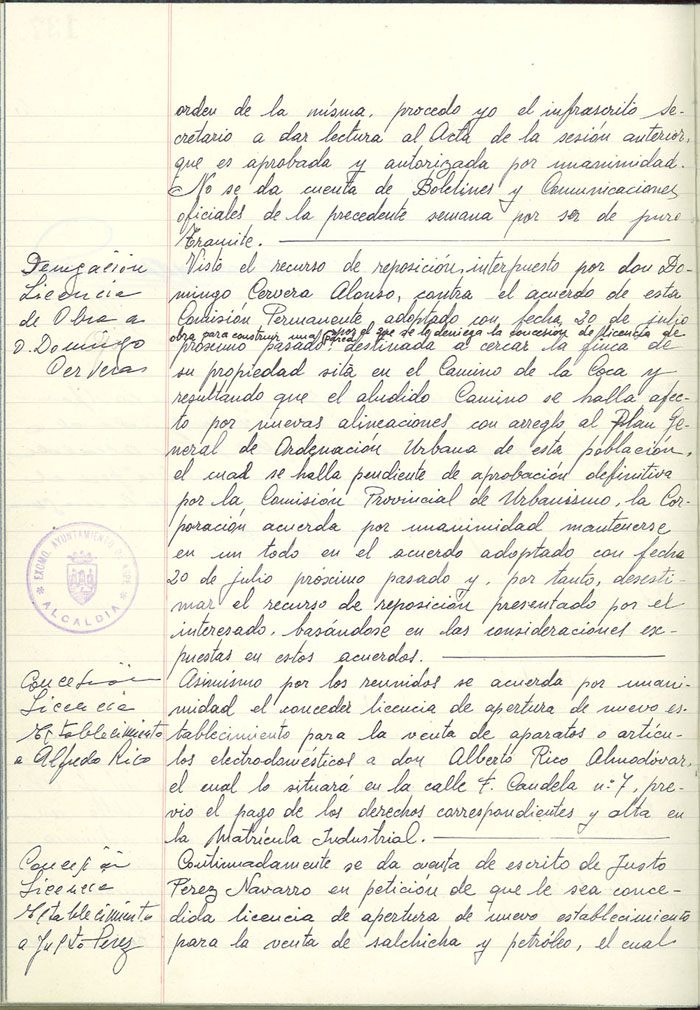 orden de la misma, procedo yo el infrascrito Se-
cretario a dar lectura al Acta de la sesión anterior,
que es aprobada y autorizada por unanimidad.
No se da cuenta de Boletines y Comunicaciones
oficiales de la precedente semana por ser de puro
trámite.
Denegación
Licencia
de Obra a
D. Domingo
Cerveras
Visto el recurso de reposición, interpuesto por don Do-
mingo Cervera Alonso, contra el acuerdo de esta
Comisión Permanente adoptado con fecha 20 de julio
obra para construir una pared por el que se le deniega la concesión de licencia de
próximo pasado destinada a cercar la finca de
su propiedad sita en el Camino de la Coca y
resultando que el aludido Camino se halla afec-
to por nuevas alineaciones con arreglo al Plan Ge-
neral de Ordenación Urbana de esta población,
el cual se halla pendiente de aprobación definitiva
por la Comisión Provincial de Urbanismo, la Cor-
poración acuerda por unanimidad mantenerse
en un todo en el acuerdo adoptado con fecha
20 de julio próximo pasado y, por tanto, desesti-
mar el recurso de reposición presentado por el
interesado, basándose en las consideraciones ex-
puestas en estos acuerdos.
EXCMO. AYUNTAMIENTO DE ASPE
ALCALDIA
Concesión
Licencia
Establecimiento
a Alfredo Rico
Asimismo por los reunidos se acuerda por unani-
midad el conceder licencia de apertura de nuevo es-
tablecimiento para la venta de aparatos o artícu-
los electrodomésticos a don Alberto Rico Almodóvar,
el cual lo situará en la calle F. Candela nº 7, pre-
vio el pago de los derechos correspondientes y alta en
la Matrícula Industrial.
Concesión
Licencia
Establecimiento
a Justo Perez
Continuadamente se da cuenta de escrito de Justo
Pérez Navarro en petición de que le sea conce-
dida licencia de apertura de nuevo establecimiento
para la venta de salchicha y petróleo, el cual